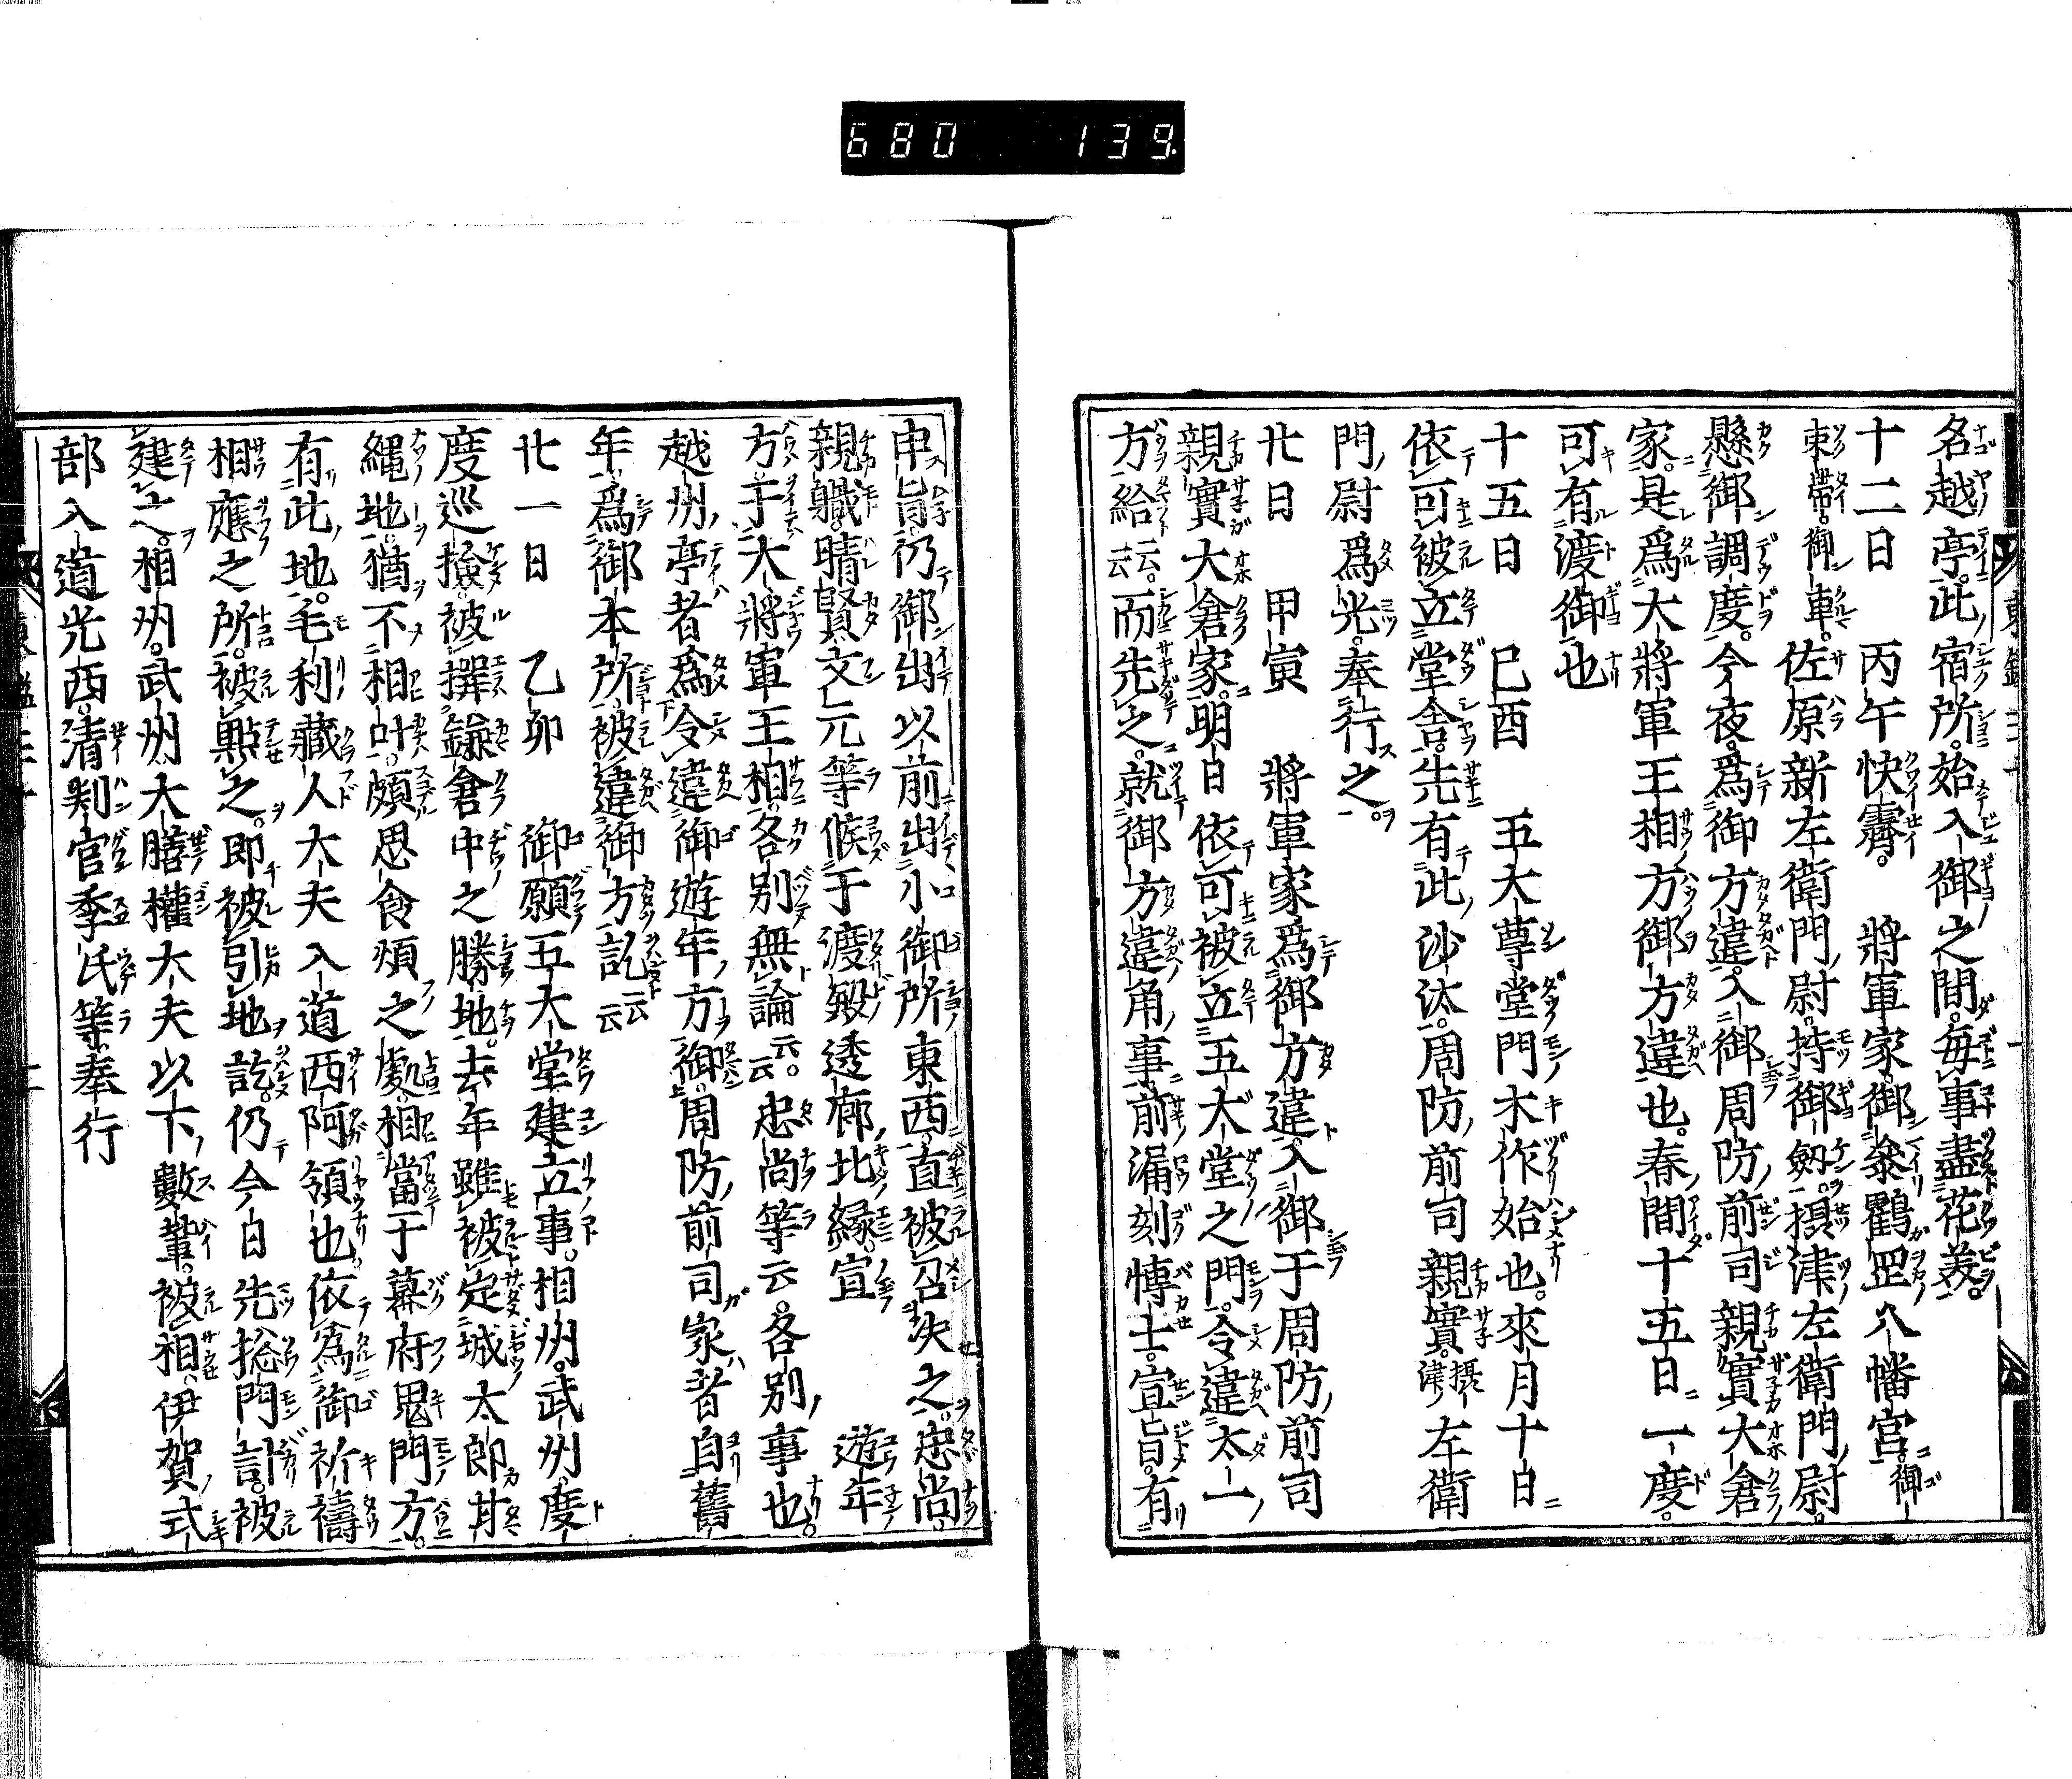 680 139
名越亭。此宿所。始入御之間。毎事盡花美。
十二日 丙午 快霽。 將軍家。御參鶴岡八幡宮。御
束帶。御車。 佐原新左衛門尉。持御劔。攝津左衛門尉。
懸御調度。今夜。爲御方違。入御周防前司親實大倉
家。是爲大將軍王相方御方違也。春間十五日一度。
可有渡御也
十五日 巳酉 五大尊堂門木作始也。來月十日
依可被立堂舎。先有此沙汰。周防前司親實。攝津左衛
門尉爲光。奉行之。
廿日 甲寅 將軍家爲御方違入御于周防前司
親實大倉家。明日依可被立五大堂之門。令違太一
方給云云。而先之。就御方違角事。前漏刻博士。宣旨。有
申旨。仍御出以前出小御所東西。直被召決之。忠尚。
親職。晴賢。文元等候于渡殿透廊北縁。宣 遊年
方于大將軍王相。各別無論云云。忠尚等云。各別事也。
越州亭者爲令違御遊年方御。周防前司家者自舊
年爲御本所被違御方訖云云
廿一日 乙卯 御願五大堂建立事。相州。武州。度
度巡撿被撰鎌倉中之勝地。去年雖被定城太郎甘
繩地。猶不相叶。頗思食煩之處。相當于幕府鬼門方。
有此地。毛利藏人大夫入道西阿領也。依爲御祈禱
相應之所。被點之。即被引地訖。仍今日先惣門計。被
建之。相州。武州。大膳權大夫以下數輩。被相。伊賀式
部入道光西。清判官季氏等。奉行